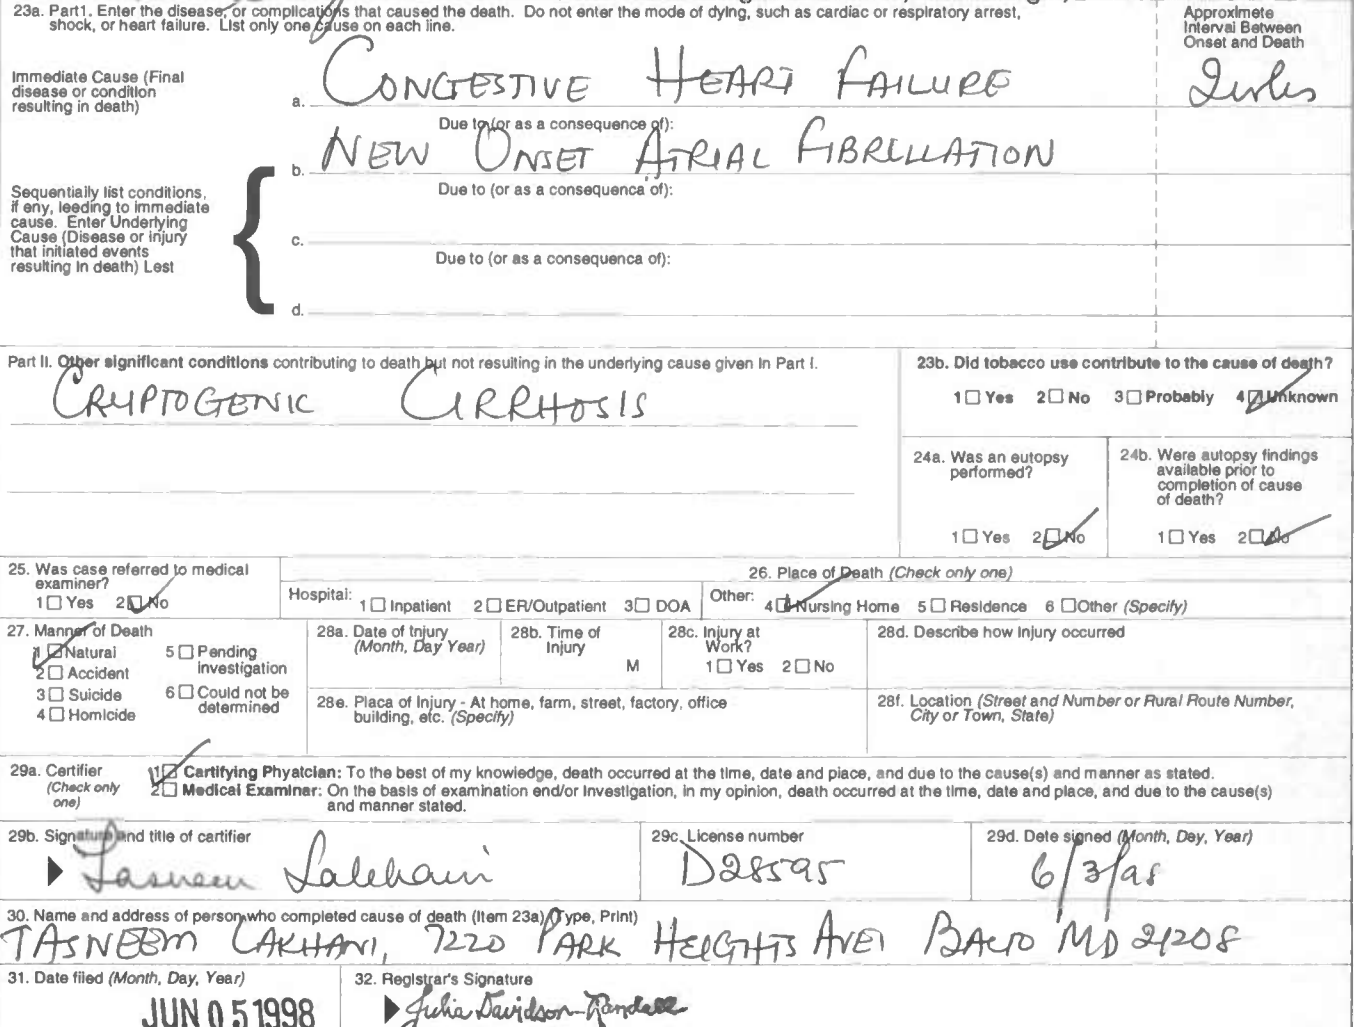 23a. Part1. Enter the disease, or complications that caused the death. Do not enter the mode of dying, such as cardiac or respiratory arrest,
shock, or heart failure. List only one cause on each line.
Approximete
Interval Between
Onset and Death
Immediate Cause (Final
disease or condition
resulting in death)
a. CONGESTIVE HEART FAILURE
Due to (or as a consequence of):
b. NEW ONSET ATRIAL FIBRILLATION
Due to (or as a consequenca of):
Sequentially list conditions,
if eny, leeding to immediate
cause. Enter Underlying
Cause (Disease or injury
that initiated events
resulting in death) Lest
c.
Due to (or as a consequenca of):
d.
Part II. Other significant conditions contributing to death but not resulting in the underlying cause given in Part I.
CRYPTOGENIC CIRRHOSIS
23b. Did tobacco use contribute to the cause of death?
1 Yes 2 No 3 Probably 4 Unknown
24a. Was an eutopsy
performed?
1 Yes 2 No
24b. Were autopsy findings
available prior to
completion of cause
of death?
1 Yes 2 No
25. Was case referred to medical
examiner?
1 Yes 2 No
26. Place of Death (Check only one)
Hospital: 1 Inpatient 2 ER/Outpatient 3 DOA Other: 4 Nursing Home 5 Residence 6 Other (Specify)
27. Manner of Death
1 Natural
2 Accident
3 Suicide
4 Homicide
5 Pending
investigation
6 Could not be
determined
28a. Date of Injury
(Month, Day Year)
28b. Time of
Injury
M
28c. Injury at
Work?
1 Yes 2 No
28d. Describe how Injury occurred
28e. Placa of Injury - At home, farm, street, factory, office
building, etc. (Specify)
28f. Location (Street and Number or Rural Route Number,
City or Town, State)
29a. Certifier
(Check only
one)
1 Cartifying Phyatcian: To the best of my knowledge, death occurred at the time, date and place, and due to the cause(s) and manner as stated.
2 Medical Examinar: On the basis of examination end/or Investigation, in my opinion, death occurred at the time, date and place, and due to the cause(s)
and manner stated.
29b. Signature and title of cartifier
Tasneem Lakhani
29c. License number
D28595
29d. Dete signed (Month, Day, Year)
6/3/98
30. Name and address of person who completed cause of death (Item 23a) (Type, Print)
TASNEEM LAKHANI, 7220 PARK HEIGHTS AVE, BALTO MD 21208
31. Date filed (Month, Day, Year)
JUN 05 1998
32. Registrar's Signature
Julia Davidson-Randall